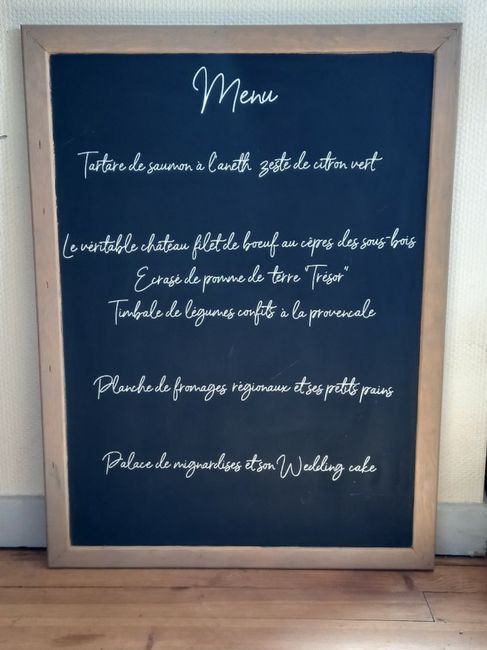 Menu
Tartare de saumon à l'aneth zeste de citron vert
Le véritable château filet de boeuf au cèpes des sous-bois
Ecrasé de pomme de terre "Trésor"
Timbale de légumes confits à la provencale
Planche de fromages régionaux et ses petits pains
Palace de mignardises et son Wedding cake